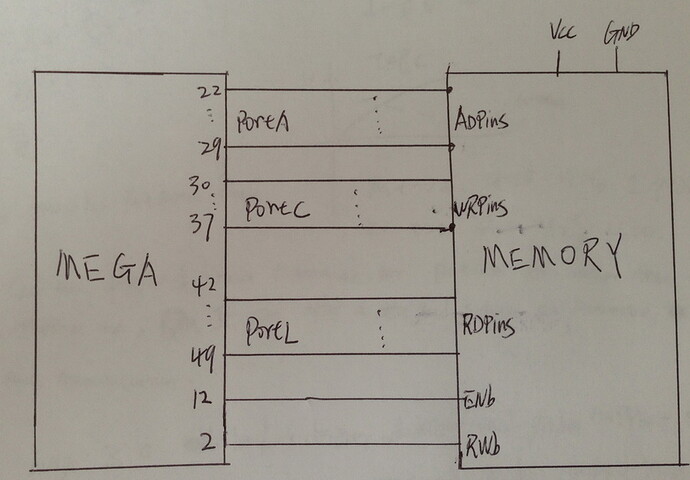 Vcc GND
22
PortA ADPins
29
30
PortC WRPins
37
MEGA MEMORY
42
PortL RDPins
49
12 ENb
2 RWb